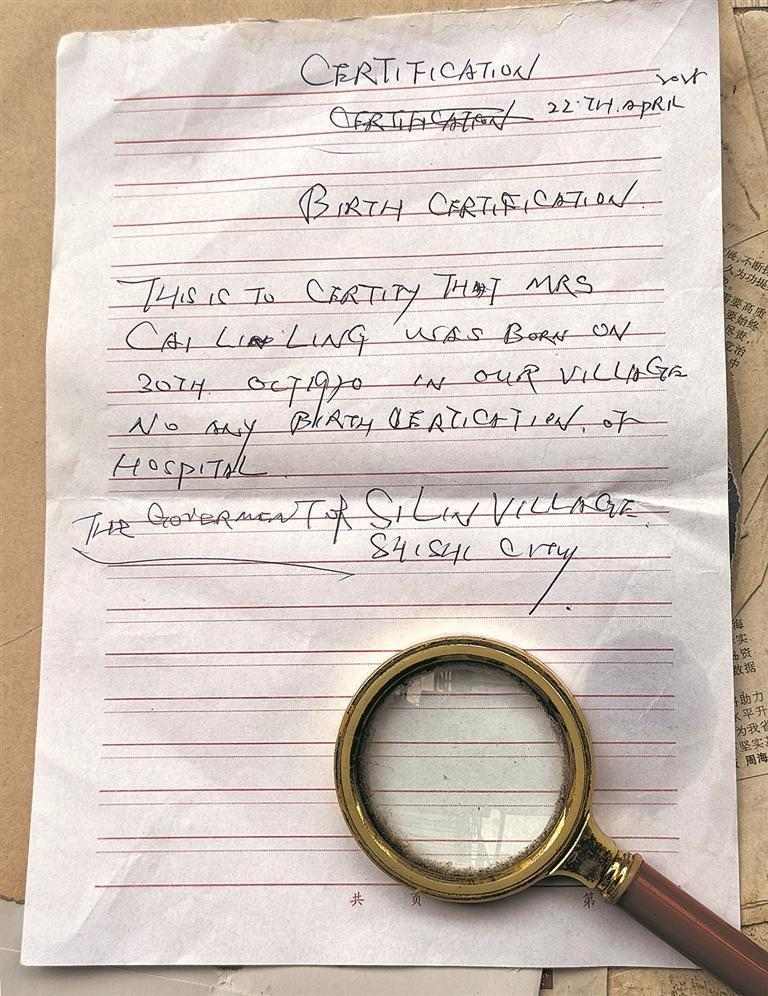 CERTIFICATION
CERTIFICATION 22.TH.APRIL
BIRTH CERTIFICATION.
THIS IS TO CERTITY THAT MRS
CAI LIN LING WAS BORN ON
30TH OCT 1970 IN OUR VILLAGE
NO ANY BIRTH CERTICATION. OF
HOSPITAL
THE GOVERMENT OF SILIN VILLAGE.
SHISHI CITY.
共 页 第